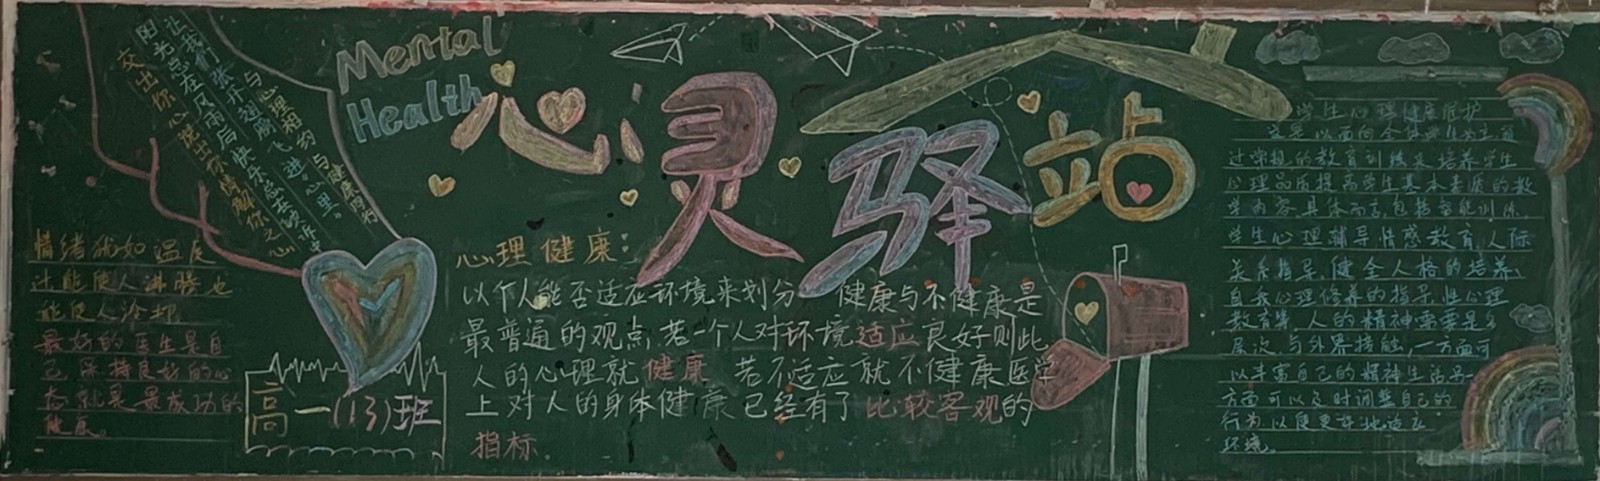 让我们张开翅膀飞进心里。
与心理相约 与健康同行
阳光总在风雨后 快乐总在倾诉中
交出你心 说出你情 解你之心
Mental
Health
心灵驿站
情绪犹如温度
过能使人沸腾也
能使人冷却
最好的医生是自
己 保持良好的心
态就是最成功的
健康。
高一(13)班
心理健康:
以个人能否适应环境来划分 健康与不健康是
最普通的观点 若一个人对环境适应良好则此
人的心理就健康 若不适应就不健康医学
上对人的身体健康已经有了比较客观的
指标.
学生心理健康维护
这是以面向全体学生为主通
过常规的教育训练及培养学生
心理品质提高学生基本素质的教
学内容具体而言,包括智能训练.
学生心理辅导.情感教育.人际
关系指导.健全人格的培养、
自我心理修养的指导.性心理
教育等.人的精神需要是多
层次.与外界接触,一方面可
以丰富自己的精神生活另一
方面可以及时调整自己的
行为.以便更好地适应
环境.